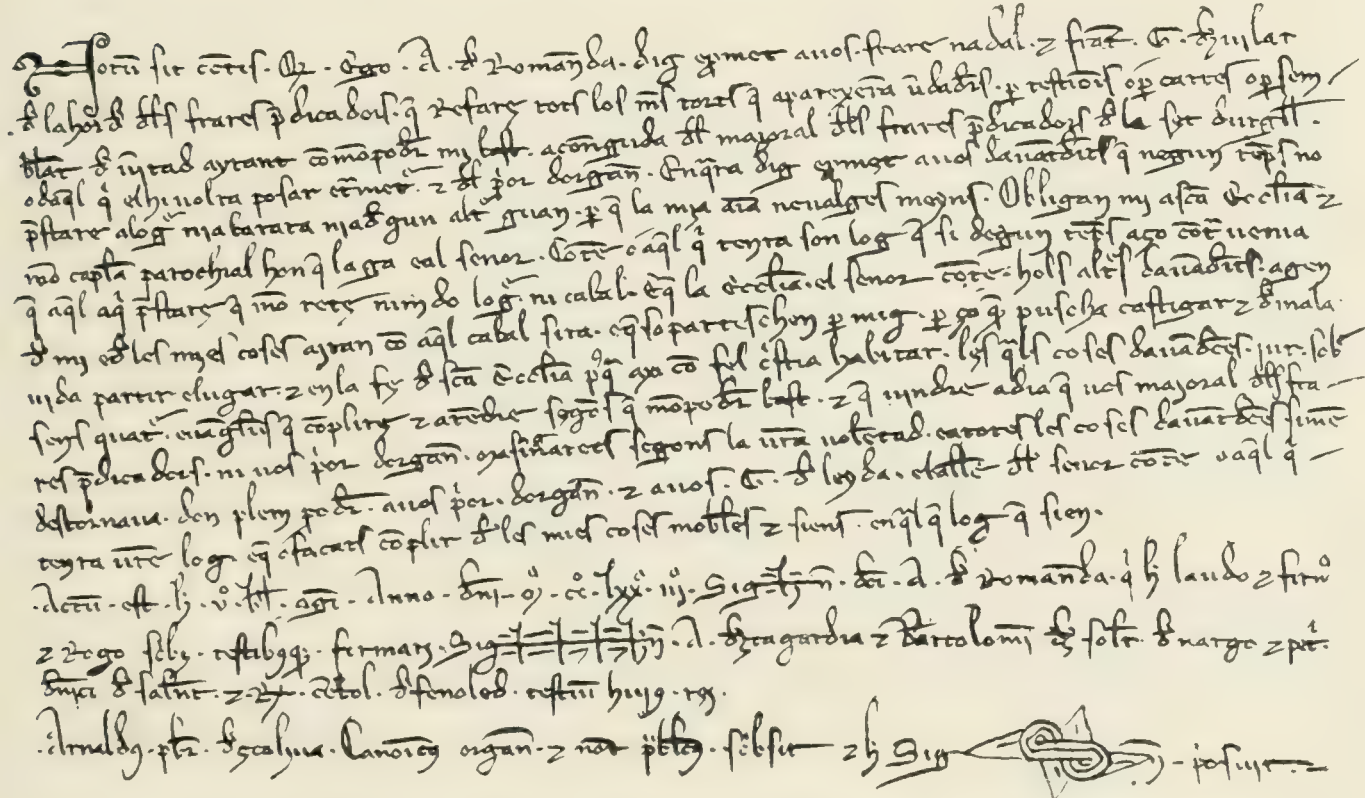 Notū sit cētis. Q. Ego. A. d Romāda. dig eꝑmet auos. frare nadal. ⁊ frar̄. G. d uilar
d lahor d dls frares p̄dicadors. q̄ Refare tots los mēs torts q̄ aparexerā ūdadrs. ꝑ testimōis oꝑ cartes oꝑ sem
blāt d ūitad aytant cōmo podr mi bast. aconguda dl maioral dls frares p̄dicadors d la seu durgll.
odaq̄l q̄ el hi uolra posar etmet. ⁊ dl p̄or dorgāñ. Enq̄ra dig eꝑmet auos dauātdits q̄ negun tēps no
p̄stare alog̃ ni abarata ni ad gun altr̃ guan. ꝑ q̄ la mia aīa neualges meyns. Obligan mi a scā Ecclīa ⁊
mō caplā parochial hon q̄ laga eal senor. Cōte o aq̄l q̄ tenra son log q̄ si degun tēps aço cōtr̃ uenia
q̄ aq̄l aq̄ p̄stare q̄ mō rete nim do log̃. ni cabal. eq̄ la Ecclīa. el senor cōte. hols altr̃s dauādits. agen
d mi ed les mies coses aytan cō aq̄l cabal sira. eq̄ so partes chen ꝑ mig. ꝑ ço q̄ꝑ puscha castigar ⁊ d mala
uida partir e lugar. ⁊ en la fe d scā Ecclīa p̄q̄ axa cō fel c̄stia habitar. les q̄ls coses dauādces. jur. sobr̄
sens quatr̃. euāglīs q̄ cōplire ⁊ atēdre segōs q̄ mō podr bast. ⁊ q̄ uindre a dia q̄ uos maioral dls fra
res p̄dicadors. ni uos p̄or dorgāñ. massinarets segons la ūra uolētad. eatotes les coses dauātdces si mē
destornaua. don plem podr. auos p̄or. dorgāñ. ⁊ auos. G. d leyda. el alle dl senor cōte o aq̄l q̄
tenra ūre log. eq̄ o façats cōplir d les mies coses mobbles ⁊ siens. en q̄l q̄ log q̄ sien.
Actū. est. h. v. kl. agi. Anno. dn̄i. m. cc. lxx. iij. Sig n̄. dci. A. d Romāda. q̄ h laudo ⁊ firmo
⁊ Rogo scbi. testibusq̄. firmari. Sig n̄. A. d çagardia ⁊ Bartolomi d solr. d nargo ⁊ pet.
dn̄ici d saln̄t. ⁊ R. Cētol. d fenoled. testiū huius rei.
Arnaldus. pbr. d scoliua. Canonicus organ. ⁊ not p̄blcus. scbsit ⁊ h Sig n̄ posuit.